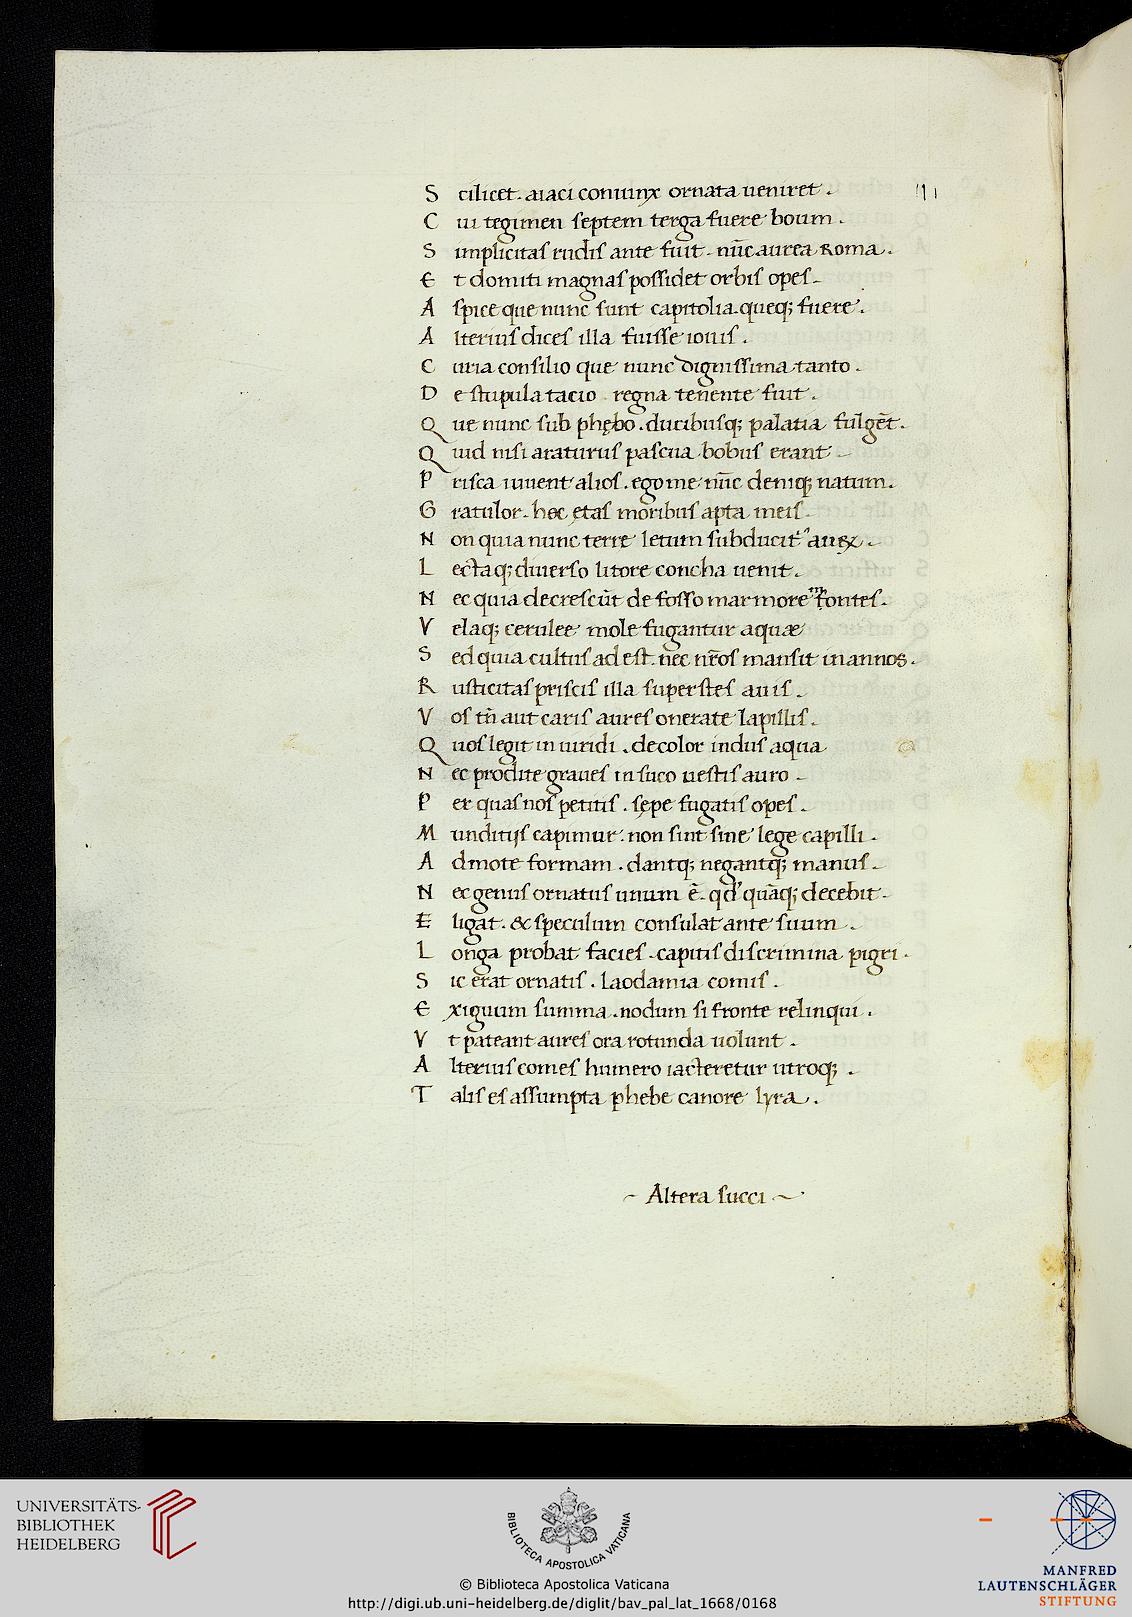 S cilicet. aiaci coniunx ornata ueniret.
C ui tegimen septem terga fuere boum.
S implicitas rudis ante fuit. nūc aurea Roma.
E t domiti magnas possidet orbis opes.
A spice que nunc sunt capitolia. queq; fuere.
A lterius dices illa fuisse iouis.
C uria consilio que nunc dignissima tanto.
D e stupula tacio regna tenente fuit.
Q ue nunc sub phębo. ducibusq; palatia fulgēt.
Q uid nisi araturus pascua bobus erant
P risca iuuent alios. ego me nūc deniq; natum.
G ratulor. hec ętas moribus apta meis.
N on quia nunc terre letum subducit' auex.
L ectaq; diuerso litore concha uenit.
N ec quia decrescūt de fosso marmore m̄ fontes.
V elaq; cerulee mole fugantur aquæ
S ed quia cultus ad est. nec nr̄os mansit in annos.
R usticitas priscis illa superstes auis.
V os tn̄ aut caris aures onerate lapillis.
Q uos legit in uiridi. decolor indus aqua
N ec prodite graues in suco uestis auro
P er quas nos petitis. sępe fugatis opes.
M unditijs capimur. non sint sine lege capilli.
A dmote formam. dantq; negantq; manus.
N ec genus ornatus unum ē. qd' quāq; decebit.
E ligat. & speculum consulat ante suum.
L onga probat facies. capitis discrimina pigri.
S ic erat ornatis. Laodamia comis.
E xiguum summa. nodum si fronte relinqui.
V t pateant aures ora rotunda uolunt.
A lterius comes humero iacteretur utroq;.
T alis es assumpta phebe canore lyra.
~ Altera succi ~
UNIVERSITÄTS-
BIBLIOTHEK
HEIDELBERG
BIBLIOTECA APOSTOLICA VATICANA
MANFRED
LAUTENSCHLÄGER
STIFTUNG
© Biblioteca Apostolica Vaticana
http://digi.ub.uni-heidelberg.de/diglit/bav_pal_lat_1668/0168